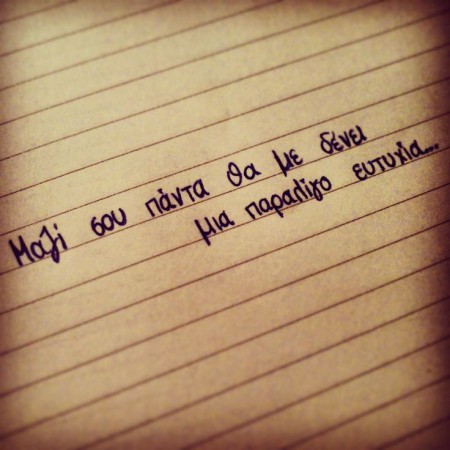 Μαζί σου πάντα θα με δένει
μια παραλίγο ευτυχία...